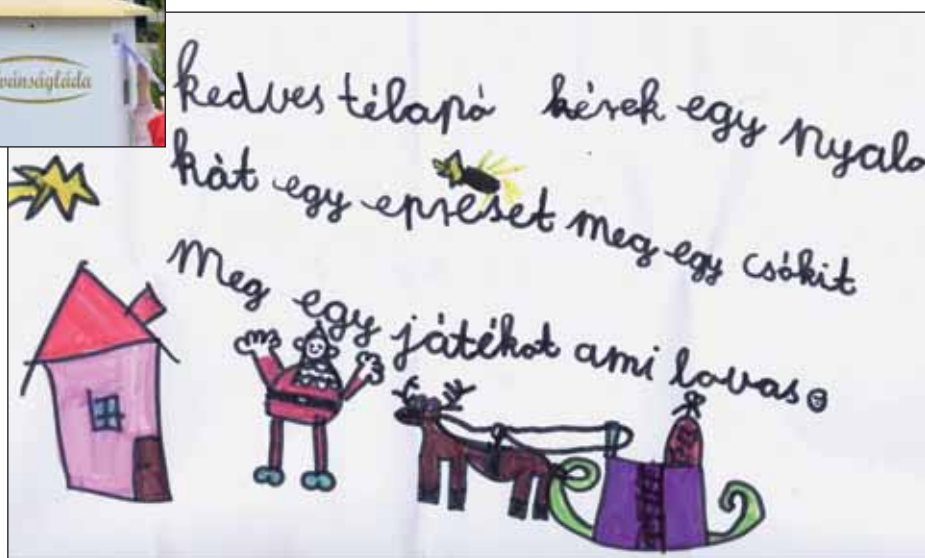 vánságláda
kedves télapó kérek egy nyalo
kát egy epreset meg egy csókit
Meg egy játékot ami lovas